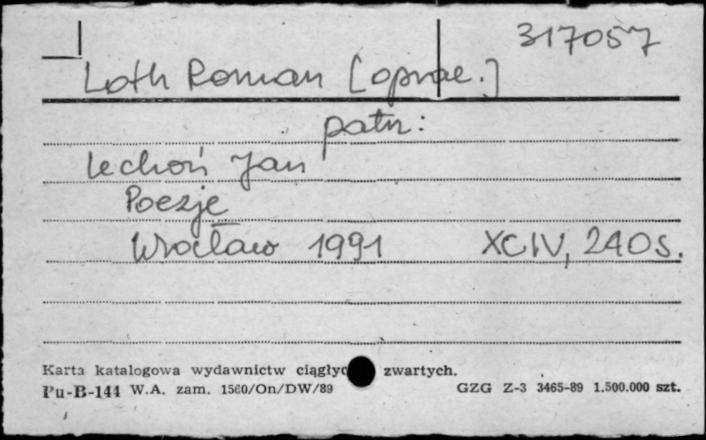 317057
Loth Roman [oprac.]
patrz:
Lechoń Jan
Poezje
Wrocław 1991 XCIV, 240 s.
Karta katalogowa wydawnictw ciągłyc zwartych.
Pu-B-144 W.A. zam. 1560/On/DW/89 GZG Z-3 3465-89 1.500.000 szt.